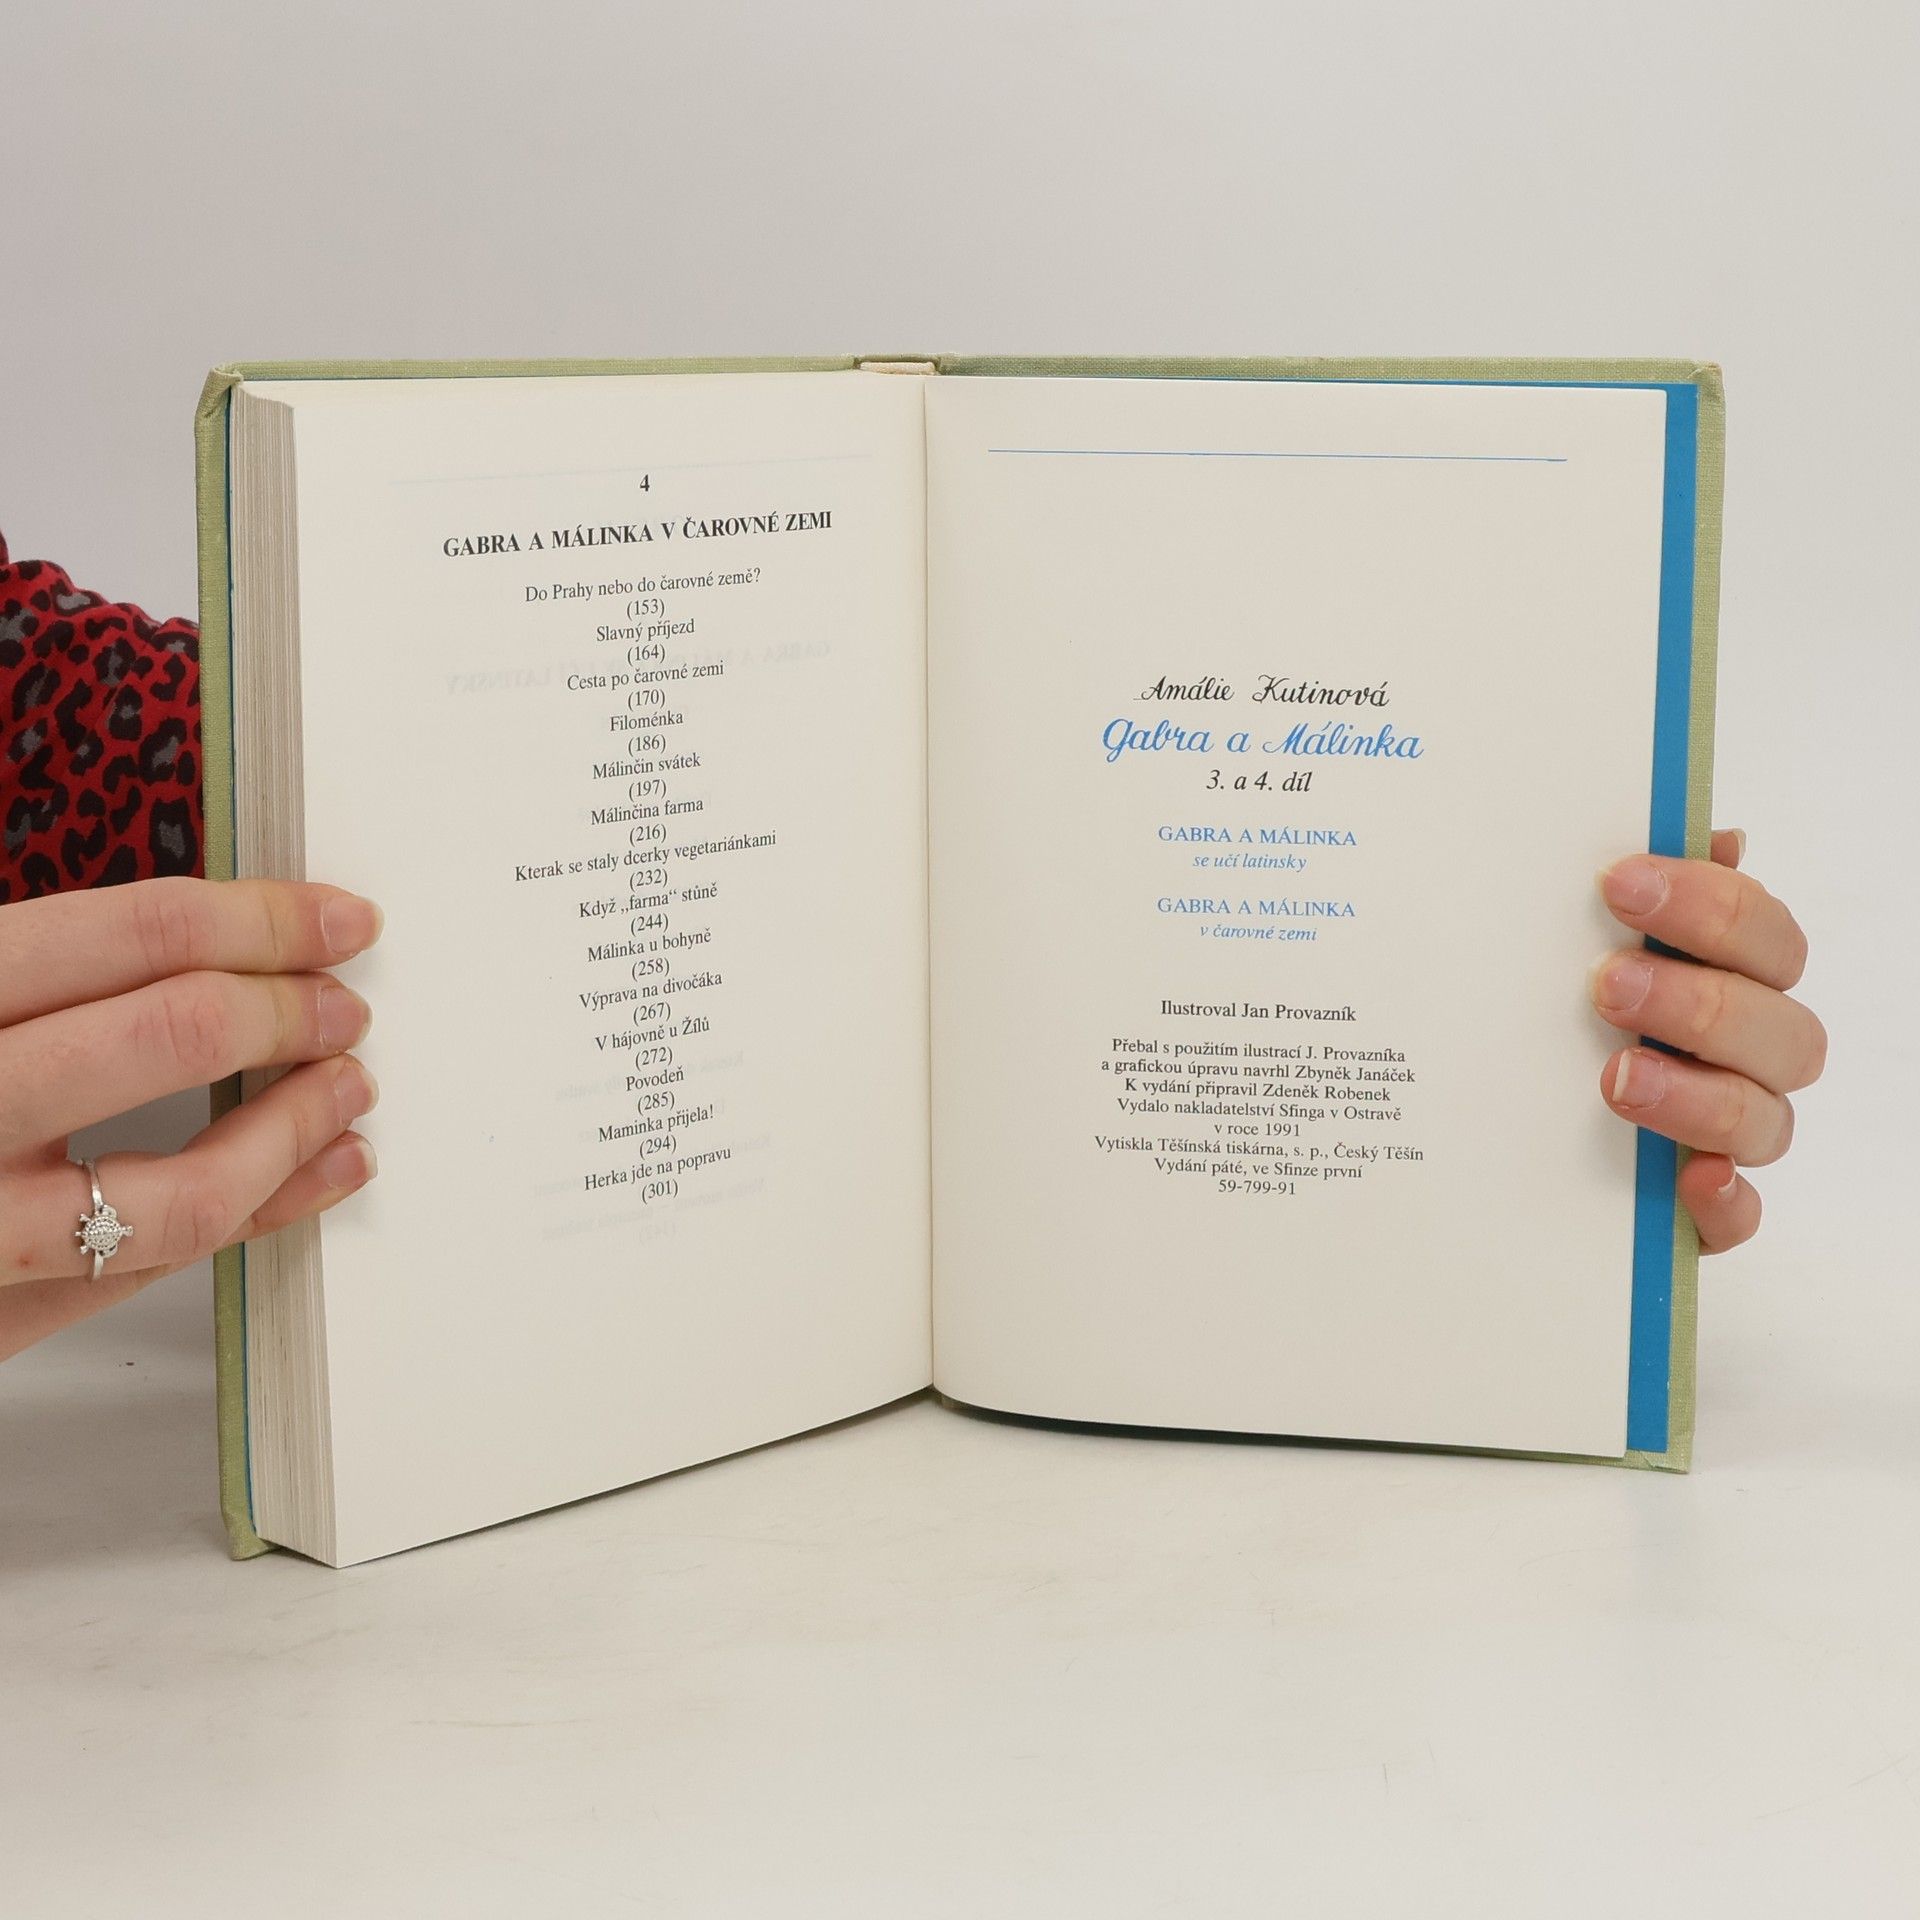 4
GABRA A MÁLINKA V ČAROVNÉ ZEMI
Do Prahy nebo do čarovné země?
(153)
Slavný příjezd
(164)
Cesta po čarovné zemi
(170)
Filoménka
(186)
Málinčin svátek
(197)
Málinčina farma
(216)
Kterak se staly dcerky vegetariánkami
(232)
Když „farma“ stůně
(244)
Málinka u bohyně
(258)
Výprava na divočáka
(267)
V hájovně u Žílů
(272)
Povodeň
(285)
Maminka přijela!
(294)
Herka jde na popravu
(301)
Amálie Kutinová
Gabra a Málinka
3. a 4. díl
GABRA A MÁLINKA
se učí latinsky
GABRA A MÁLINKA
v čarovné zemi
Ilustroval Jan Provazník
Přebal s použitím ilustrací J. Provazníka
a grafickou úpravu navrhl Zbyněk Janáček
K vydání připravil Zdeněk Robenek
Vydalo nakladatelství Sfinga v Ostravě
v roce 1991
Vytiskla Těšínská tiskárna, s. p., Český Těšín
Vydání páté, ve Sfinze první
59-799-91